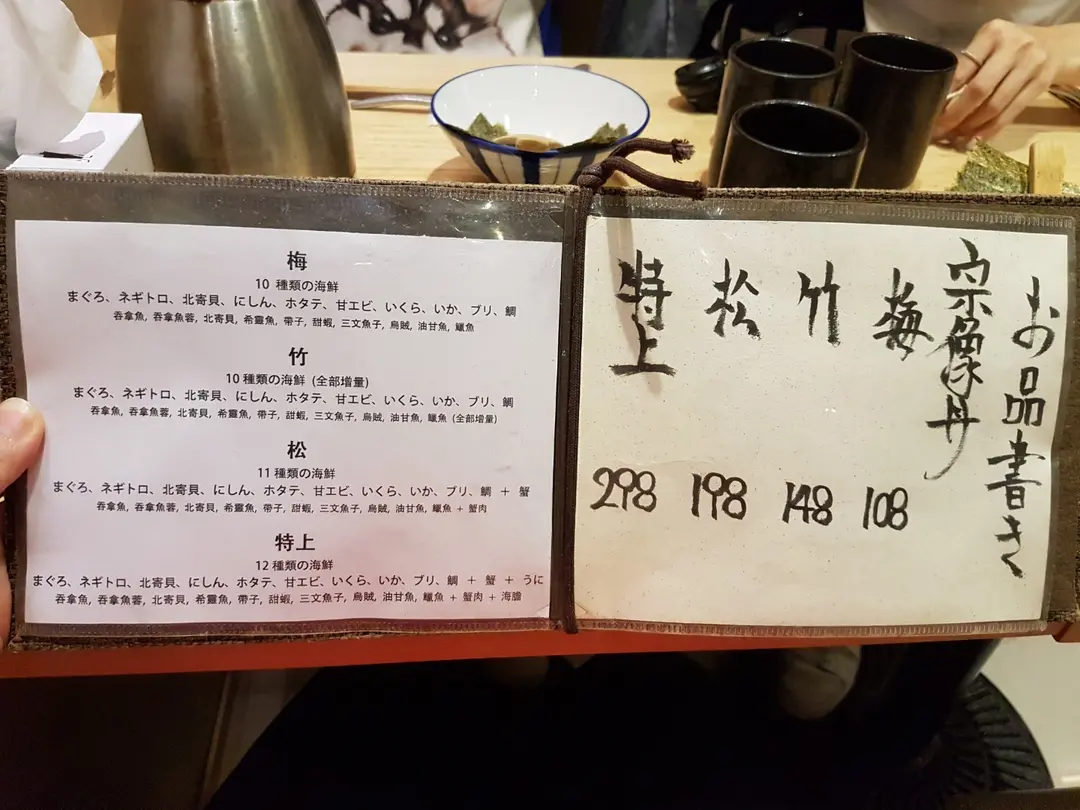 梅
10 種類の海鮮
まぐろ、ネギトロ、北寄貝、にしん、ホタテ、甘エビ、いくら、いか、ブリ、鯛
吞拿魚, 吞拿魚蓉, 北寄貝, 希靈魚, 帶子, 甜蝦, 三文魚子, 烏賊, 油甘魚, 鱲魚
竹
10 種類の海鮮 (全部增量)
まぐろ、ネギトロ、北寄貝、にしん、ホタテ、甘エビ、いくら、いか、ブリ、鯛
吞拿魚, 吞拿魚蓉, 北寄貝, 希靈魚, 帶子, 甜蝦, 三文魚子, 烏賊, 油甘魚, 鱲魚 (全部增量)
松
11 種類の海鮮
まぐろ、ネギトロ、北寄貝、にしん、ホタテ、甘エビ、いくら、いか、ブリ、鯛 + 蟹
吞拿魚, 吞拿魚蓉, 北寄貝, 希靈魚, 帶子, 甜蝦, 三文魚子, 烏賊, 油甘魚, 鱲魚 + 蟹肉
特上
12 種類の海鮮
まぐろ、ネギトロ、北寄貝、にしん、ホタテ、甘エビ、いくら、いか、ブリ、鯛 + 蟹 + うに
吞拿魚, 吞拿魚蓉, 北寄貝, 希靈魚, 帶子, 甜蝦, 三文魚子, 烏賊, 油甘魚, 鱲魚 + 蟹肉 + 海膽
お品書き
宗像丼
梅 108
竹 148
松 198
特上 298